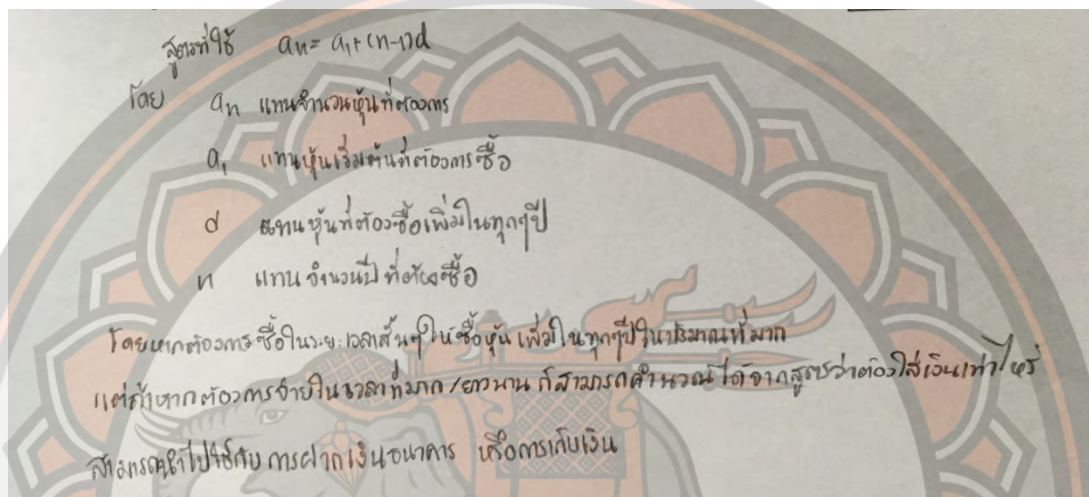 สูตรที่ใช้ aₙ = a₁+(n-1)d
โดย aₙ แทนจำนวนหุ้นที่ต้องการ
a₁ แทนหุ้นเริ่มต้นที่ต้องการซื้อ
d แทนหุ้นที่ต้องซื้อเพิ่มในทุกๆปี
n แทน จำนวนปี ที่ต้องซื้อ
โดยหากต้องการซื้อในระยะเวลาสั้นๆ ให้ซื้อหุ้น เพิ่มในทุกๆปีในปริมาณที่มาก
แต่ถ้าหากต้องการจ่ายในเวลาที่มาก/ยาวนาน ก็สามารถคำนวณได้จากสูตรว่าต้องใส่เงินเท่าไหร่
สามารถนำไปใช้กับ การฝากเงินธนาคาร หรือการเก็บเงิน